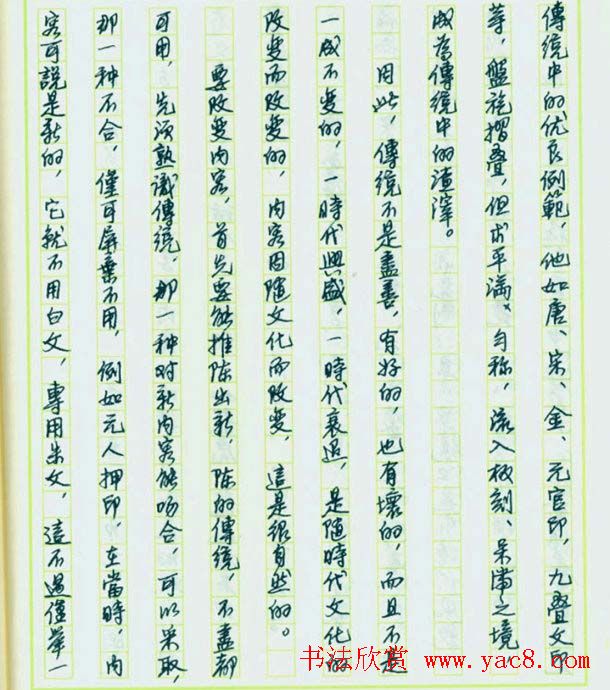 傳统中的优良例範，他如唐、宋、金、元官印，九疊文印
等，盤旋摺疊，但求平满、匀称，流入板刻、呆滞之境
成為傳统中的渣滓。
因此，傳统不是盡善，有好的，也有壞的，而且不是
一成不变的，一時代興盛，一時代衰退，是随時代文化的
改变而改变的，内容因随文化而改变，這是很自然的。
要改变内容，首先要能推陈出新，陈的傳统，不盡都
可用，先须熟識傳统，那一种对新内容能吻合，可以采取，
那一种不合，僅可屏棄不用，例如元人押印，在當時，内
容可説是新的，它就不用白文，專用朱文，這不過僅舉一
书法欣赏 www.yac8.com